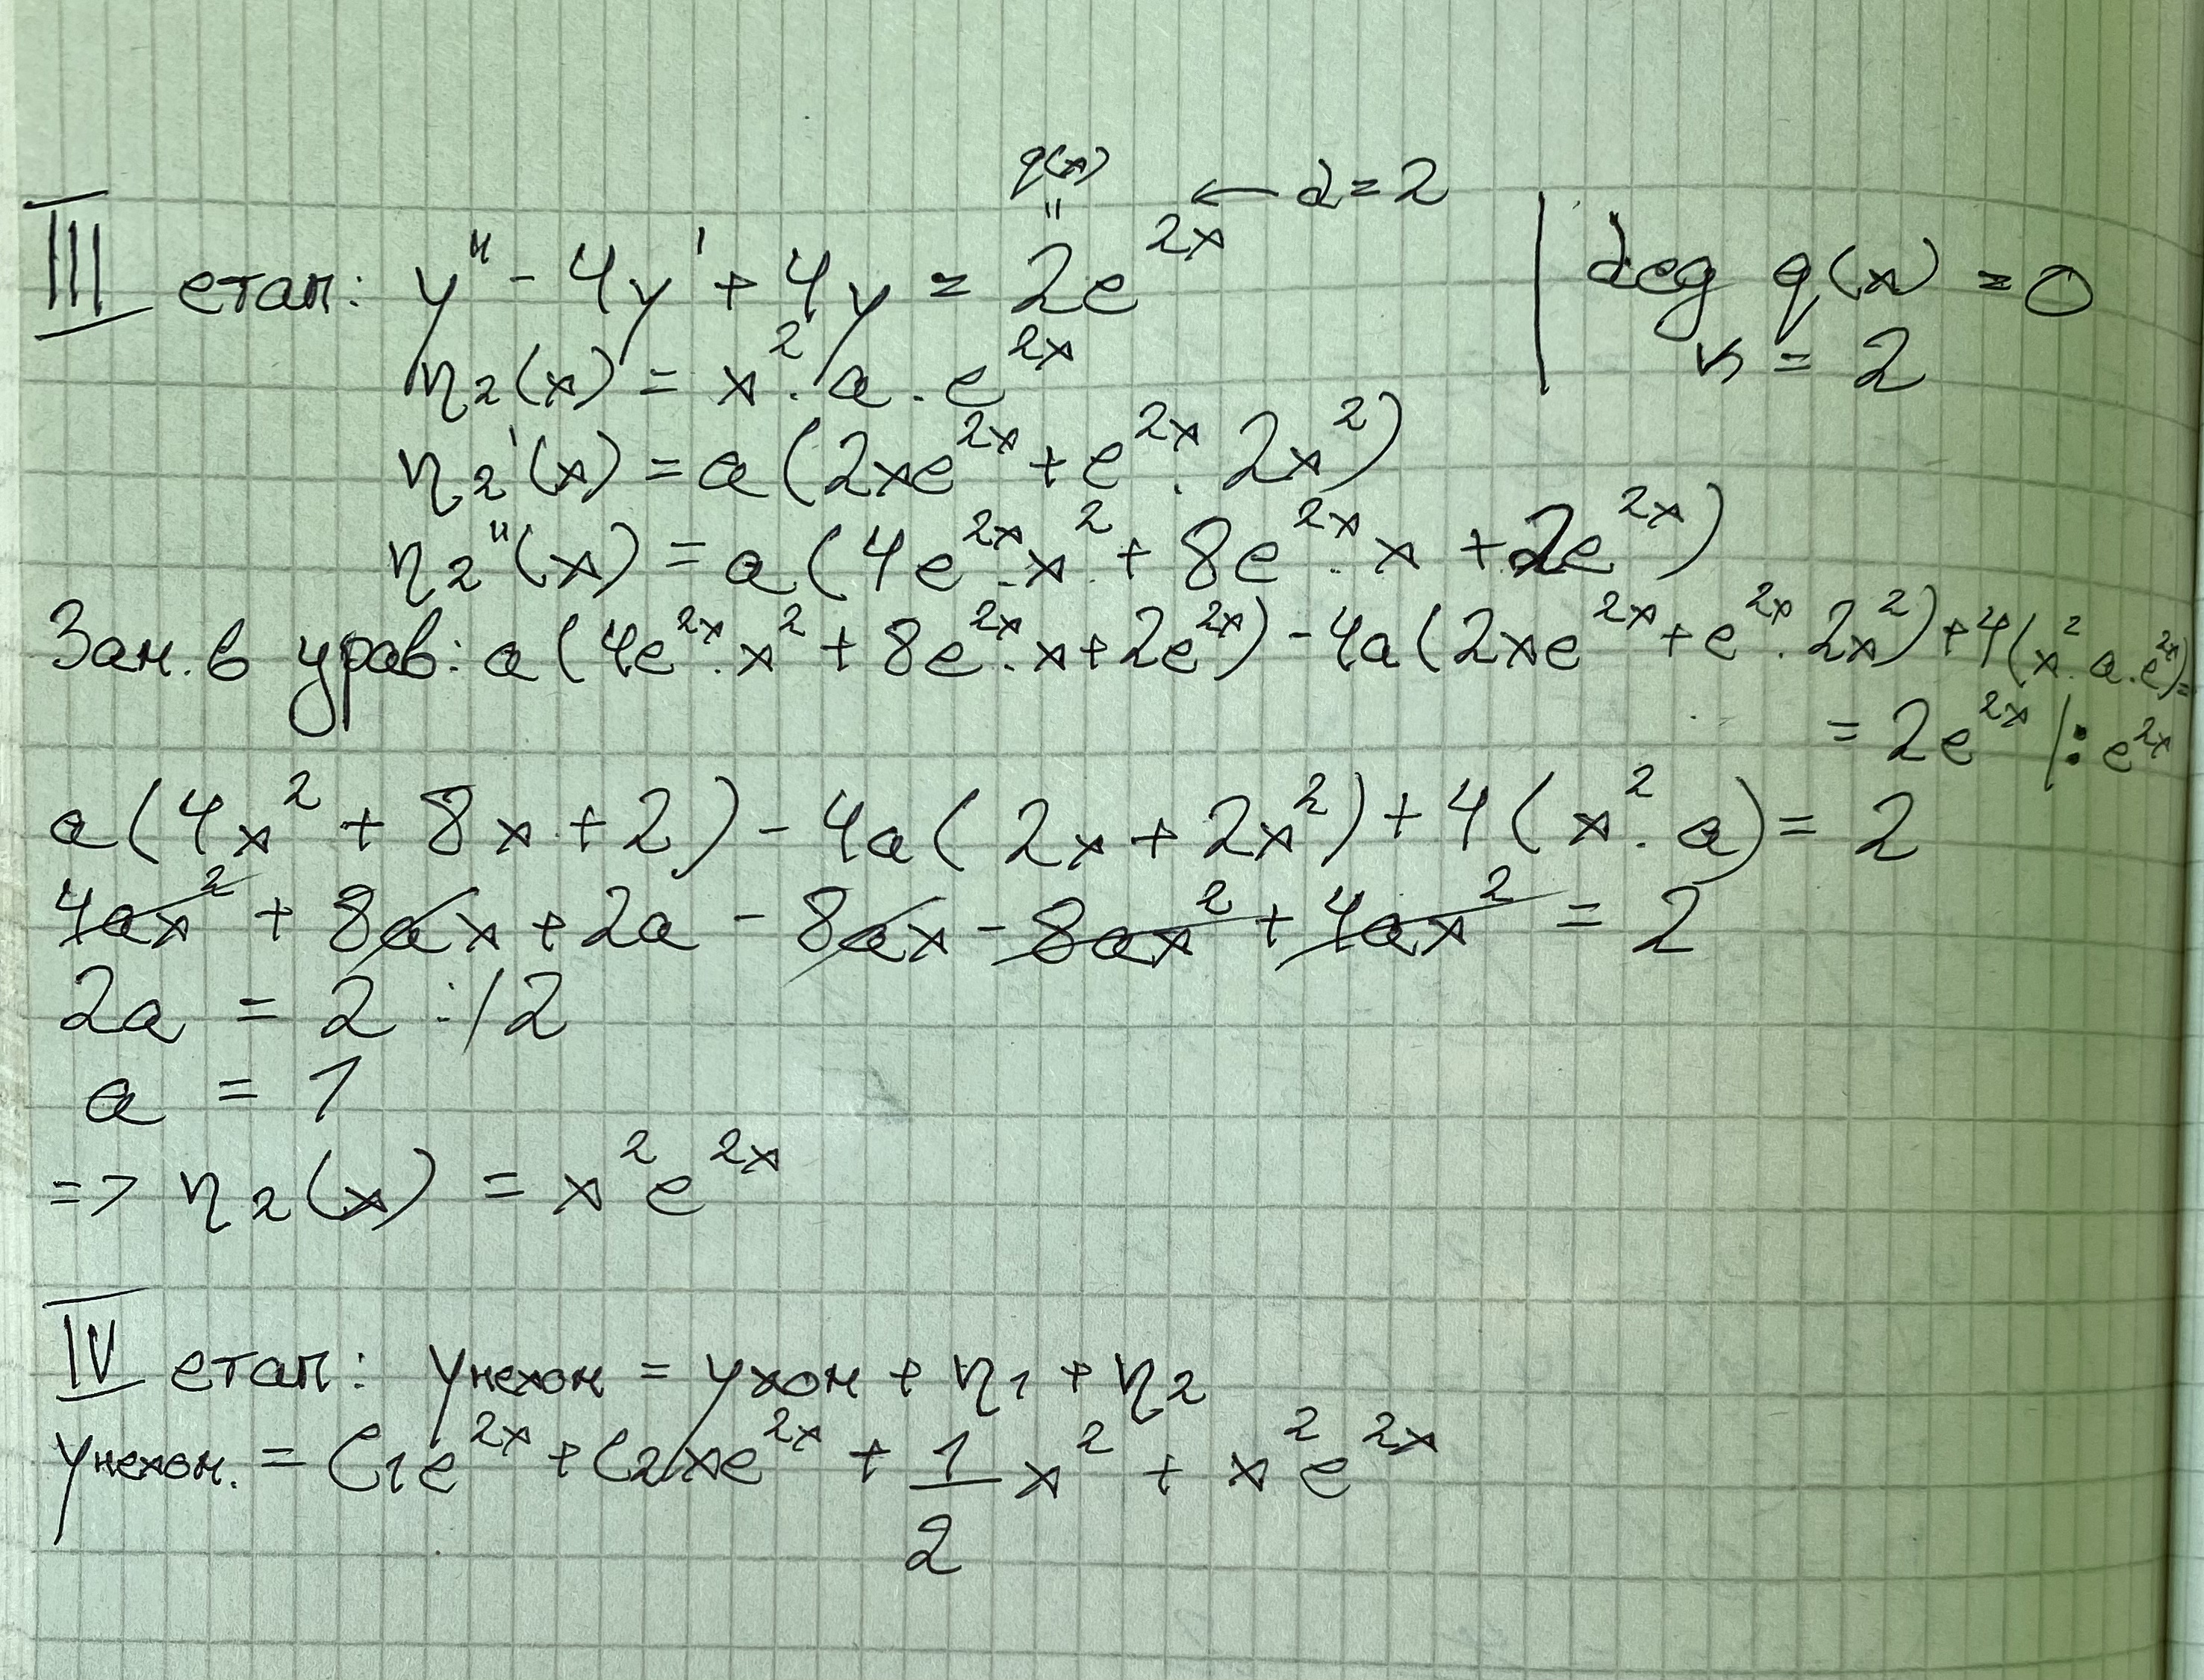 q(x)
"
← α=2
III етап: y" - 4y' + 4y = 2e^{2x} | deg q(x) = 0
η₂(x) = x² . a . e^{2x}
n = 2
η₂'(x) = a(2xe^{2x} + e^{2x} . 2x²)
η₂"(x) = a(4e^{2x} . x² + 8e^{2x} . x + 2e^{2x})
Зам. в урав: a(4e^{2x} . x² + 8e^{2x} . x + 2e^{2x}) - 4a(2xe^{2x} + e^{2x} . 2x²) + 4(x² . a . e^{2x}) =
= 2e^{2x} |: e^{2x}
a(4x² + 8x + 2) - 4a(2x + 2x²) + 4(x² . a) = 2
4ax² + 8ax + 2a - 8ax - 8ax² + 4ax² = 2
2a = 2 :/2
a = 1
=> η₂(x) = x²e^{2x}
IV етап: yнехом = yхом + η₁ + η₂
yнехом. = C₁e^{2x} + C₂xe^{2x} + 1/2 x² + x²e^{2x}